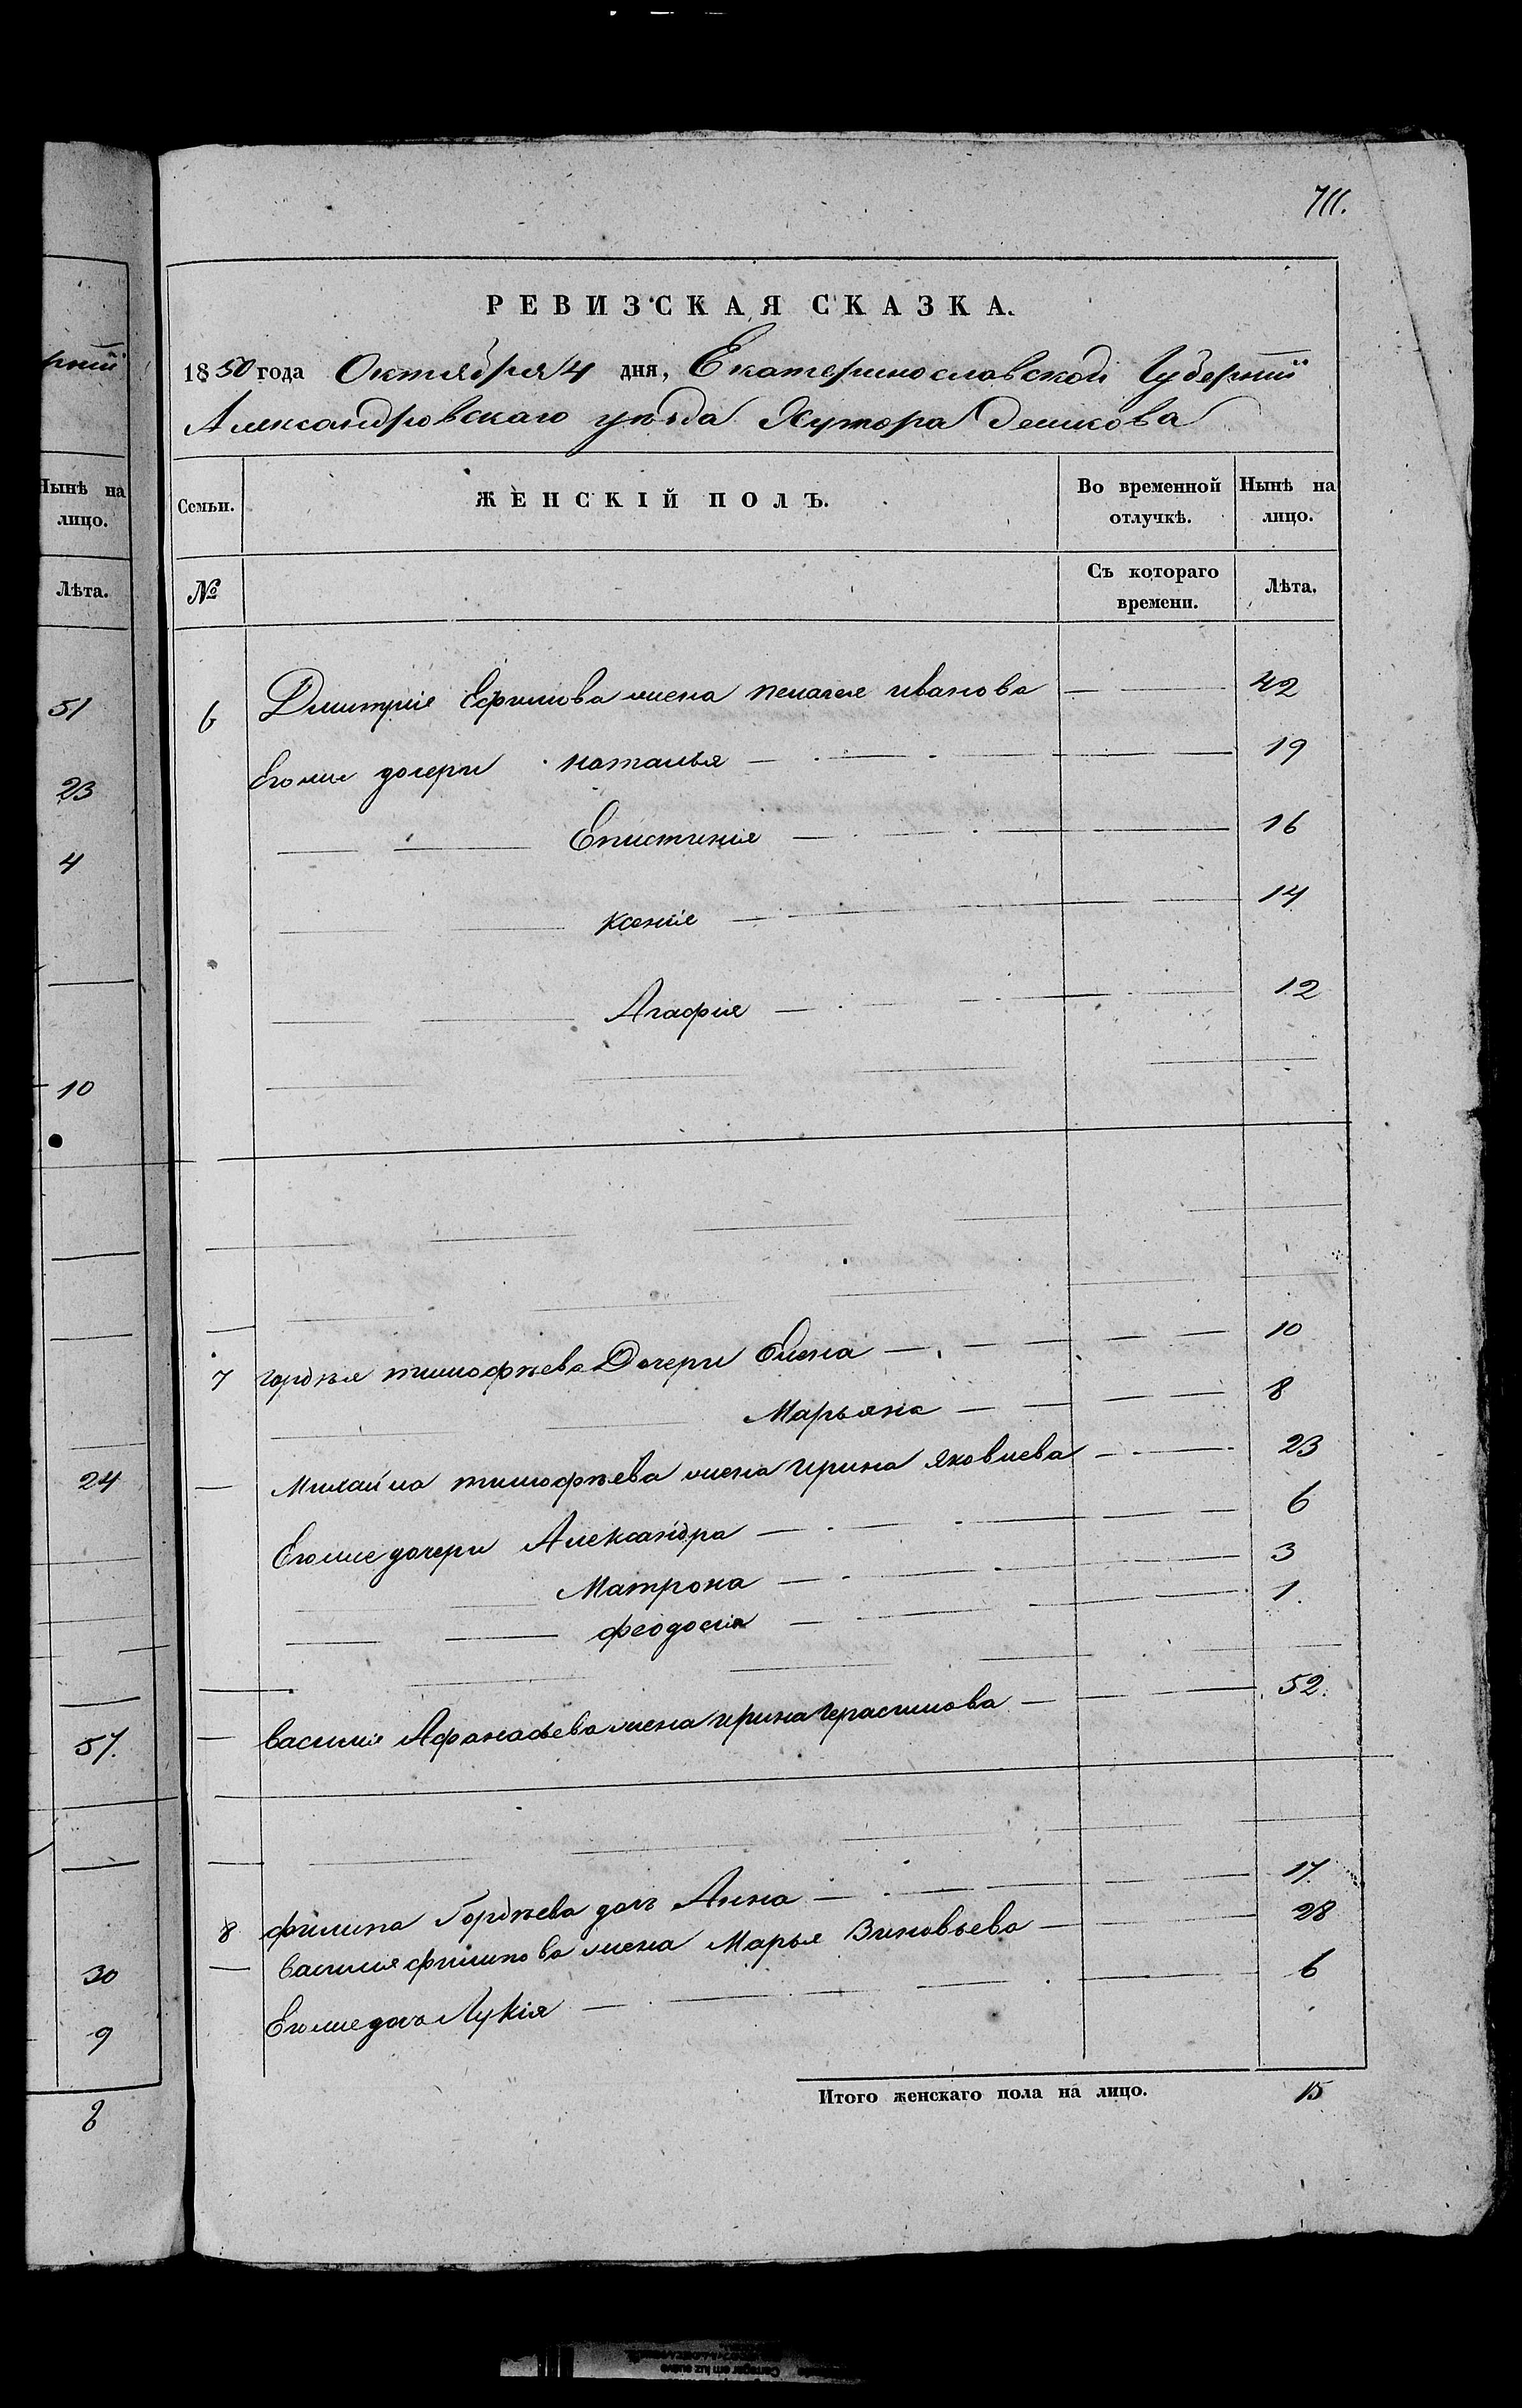 рніи
Нынѣ на
лицо.
Лѣта.
51
23
4
10
24
57.
30
9
8
711.
РЕВИЗСКАЯ СКАЗКА.
1850 года Октября 4 дня, Екатеринославской Губерніи
Александровскаго уѣзда Хутора
Семьи. ЖЕНСКІЙ ПОЛЪ. Во временной отлучкѣ. Нынѣ на лицо.
№ Съ котораго времени. Лѣта.
6 Дмитрія Ефимова жена пелагея иванова 42
Егоже дочери наталья 19
Епистиния 16
ксенія 14
Агафия 12
7 гордѣя тимофѣева Дочери Елена 10
Марьяна 8
Михайла тимофѣева жена ирина яковлева 23
Егоже дочери Александра 6
Матрона 3
феодосия 1.
василия Афанасьева жена ирина герасимова 52.
8 филипа Гордѣева дочь Анна 17.
василия филипова жена Марья Зиновьева 28
Егоже дочь Лукія 6
Итого женскаго пола на лицо. 15